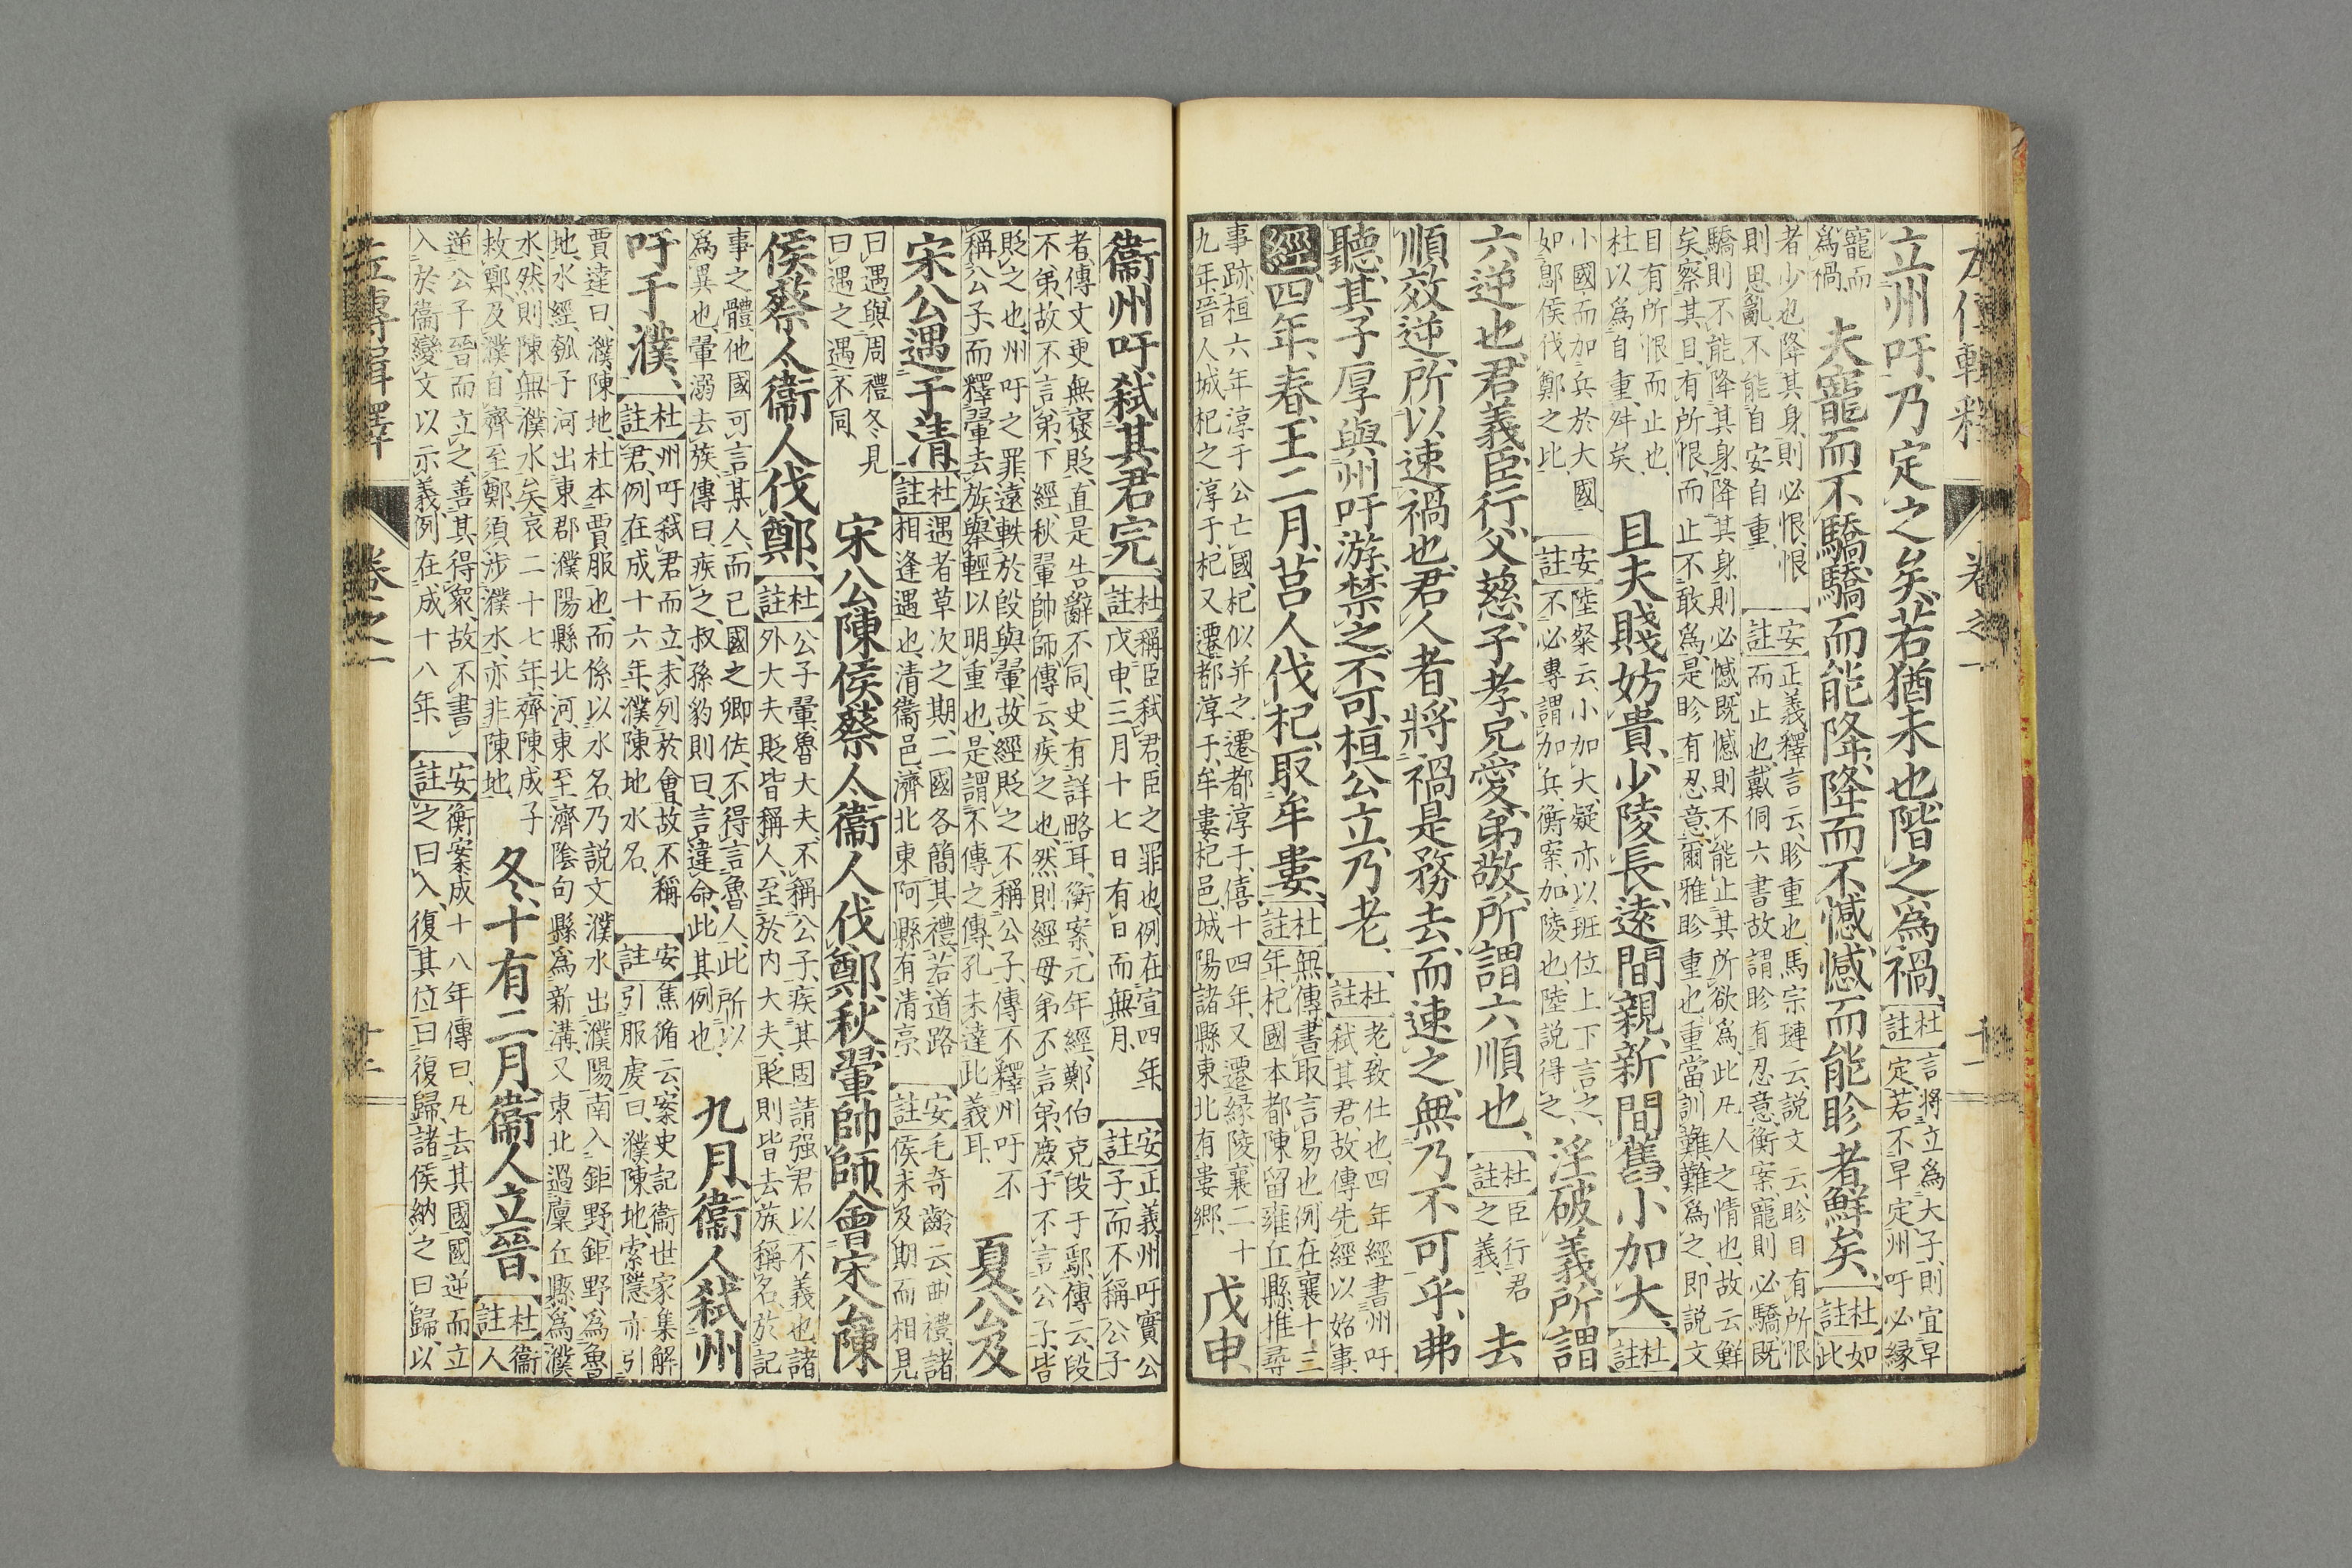 左傳輯釋 卷之一 十一
立州吁、乃定之矣、若猶未也、階之爲禍、
杜註 言將立爲大子、則宜早
定、若不早定、州吁必緣
寵而
爲禍、
夫寵而不驕、驕而能降、降而不憾、憾而能眕者鮮矣、
杜註 如
此
者少也、降其身、則必恨、恨
則思亂、不能自安自重、
安註 正義釋言云、眕重也、馬宗璉云、説文云、眕目有所恨
而止也、戴侗六書故謂眕有忍意、衡案、寵則必驕、既
驕則不能降其身、降其身則必憾、既憾則不能止其所欲爲、此凡人之情也、故云鮮
矣、察其目、有所恨、而止不敢爲、是眕有忍意、爾雅眕重也、重當訓難、難爲之、即説文
目有所恨而止也、
杜以爲自重舛矣、
且夫賤妨貴、少陵長、遠間親、新間舊、小加大、
杜註
小國而加兵於大國
如郎侯伐鄭之比、
安註 陸粲云、小加大、疑亦以班位上下言之、
不必專謂加兵、衡案、加陵也、陸説得之、
淫破義、所謂
六逆也、君義、臣行、父慈、子孝、兄愛、弟敬、所謂六順也、
杜註 臣行君
之義、
去
順效逆、所以速禍也、君人者、將禍是務去、而速之、無乃不可乎、弗
聽、其子厚與州吁游、禁之、不可、桓公立、乃老、
杜註 老、致仕也、四年經書州吁
弑其君、故傳先經以始事、
經、四年、春、王二月、莒人伐杞、取牟婁、
杜註 無傳、書取言易也、例在襄十三
年、杞國本都陳留雍丘縣、推尋
事跡、桓六年淳于公亡國、杞似并之、遷都淳于、僖十四年、又遷緣陵、襄二十
九年、晉人城杞之淳于、杞又遷都淳于、牟婁杞邑、城陽諸縣東北有婁鄉、
戊申、
衞州吁弑其君完、
杜註 稱臣弑君、臣之罪也、例在宣四年、
戊申、三月十七日、有日而無月、
安註 正義、州吁實公
子、而不稱公子
者、傳文更無褒貶、直是告辭不同、史有詳略耳、衡案、元年經、鄭伯克段于鄢、傳云、段
不弟、故不言弟、下經秋翬帥師、傳云、疾之也、然則經母弟不言弟、庶子不言公子、皆
貶之也、州吁之罪、遠軼於段與翬、故經貶之、不稱公子、傳不釋州吁不
稱公子、而釋翬去族、舉輕以明重也、是謂不傳之傳、孔未達此義耳、
夏、公及
宋公遇于清、
杜註 遇者草次之期、二國各簡其禮、若道路
相逢遇也、清衞邑、濟北東阿縣有清亭、
安註 毛奇齡云、曲禮、諸
侯未及期而相見
曰遇、與周禮冬見
曰遇之遇不同、
宋公陳侯蔡人衞人伐鄭、秋、翬帥師會宋公陳
侯蔡人衞人伐鄭、
杜註 公子翬、魯大夫、不稱公子、疾其固請强君以不義也、諸
外大夫貶皆稱人、至於内大夫、貶則皆去族稱名、於記
事之體、他國可言某人、而己國之卿佐、不得言魯人、此所以
爲異也、翬溺去族、傳曰、疾之、叔孫豹則曰、言違命、此其例也、
九月、衞人弑州
吁于濮、
杜註 州吁弑君而立、未列於會、故不稱
君、例在成十六年、濮陳地水名、
安註 焦循云、案史記衞世家集解
引服虔曰、濮陳地、索隱亦引
賈逵曰、濮陳地、杜本賈服也、而係以水名、乃説文濮水出濮陽南入鉅野、鉅野爲魯
地、水經、瓠子河出東郡濮陽縣北河、東至濟陰句縣爲新溝、又東北過廩丘縣、爲濮
水、然則陳無濮水矣、哀二十七年、齊陳成子
救鄭、及濮、自齊至鄭、須涉濮水、亦非陳地、
冬、十有二月、衞人立晉、
杜註 衞
人
逆公子晉而立之、善其得衆、故不書
入於衞、變文以示義、例在成十八年、
安註 衡案、成十八年傳曰、凡去其國、國逆而立
之曰入、復其位曰復歸、諸侯納之曰歸、以
左傳輯釋 卷之一 十二